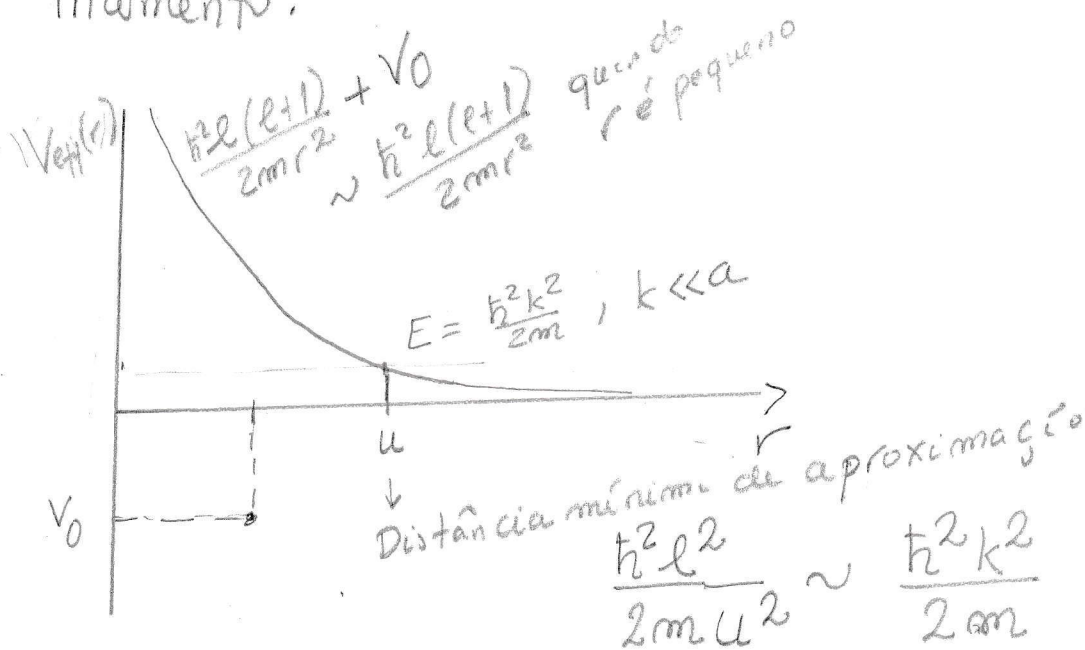 momento.
V_eff(r)
ħ²l(l+1)/2mr² + V0
~ ħ²l(l+1)/2mr² quando r é pequeno
E = ħ²k²/2m , k << a
u
r
V0
↓
Distância mínima de aproximação
ħ²l²/2mu² ~ ħ²k²/2m